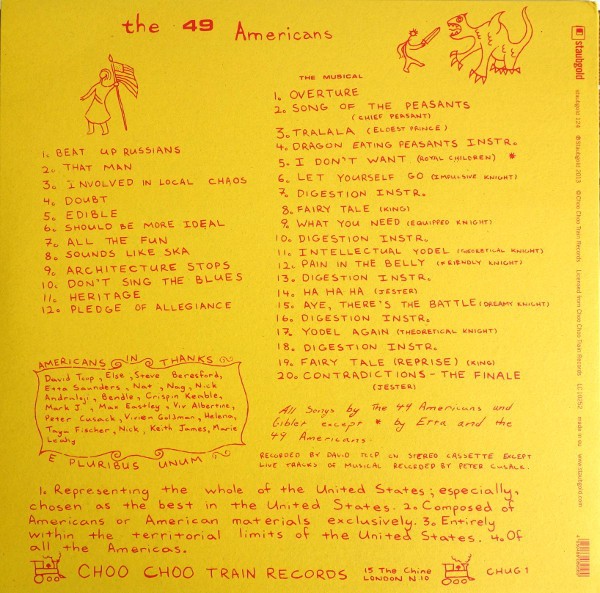 the 49 Americans
1. BEAT UP RUSSIANS
2. THAT MAN
3. INVOLVED IN LOCAL CHAOS
4. DOUBT
5. EDIBLE
6. SHOULD BE MORE IDEAL
7. ALL THE FUN
8. SOUNDS LIKE SKA
9. ARCHITECTURE STOPS
10. DON'T SING THE BLUES
11. HERITAGE
12. PLEDGE OF ALLEGIANCE
THE MUSICAL
1. OVERTURE
2. SONG OF THE PEASANTS
(CHIEF PEASANT)
3. TRALALA (ELDEST PRINCE)
4. DRAGON EATING PEASANTS INSTR.
5. I DON'T WANT (ROYAL CHILDREN) *
6. LET YOURSELF GO (IMPULSIVE KNIGHT)
7. DIGESTION INSTR.
8. FAIRY TALE (KING)
9. WHAT YOU NEED (EQUIPPED KNIGHT)
10. DIGESTION INSTR.
11. INTELLECTUAL YODEL (THEORETICAL KNIGHT)
12. PAIN IN THE BELLY (FRIENDLY KNIGHT)
13. DIGESTION INSTR.
14. HA HA HA (JESTER)
15. AYE, THERE'S THE BATTLE (DREAMY KNIGHT)
16. DIGESTION INSTR.
17. YODEL AGAIN (THEORETICAL KNIGHT)
18. DIGESTION INSTR.
19. FAIRY TALE (REPRISE) (KING)
20. CONTRADICTIONS - THE FINALE
(JESTER)
AMERICANS IN THANKS
David Toop, Else, Steve Beresford,
Etta Saunders, Nat, Nag, Nick
Andraloji, Bendle, Crispin Keable,
Mark J, Max Eastley, Viv Albertine,
Peter Cusack, Vivien Goldman, Helena,
Taya Fischer, Nick, Keith James, Marie
Leahy
E PLURIBUS UNUM
All Songs by The 49 Americans and
Giblet except * by Etta and the
49 Americans.
RECORDED BY DAVID TOOP ON STEREO CASSETTE EXCEPT
LIVE TRACKS OF MUSICAL RECORDED BY PETER CUSACK.
1. Representing the whole of the United States; especially,
chosen as the best in the United States. 2. Composed of
Americans or American materials exclusively. 3. Entirely
within the territorial limits of the United States. 4. Of
all the Americas.
CHOO CHOO TRAIN RECORDS
15 The Chine
LONDON N.10
CHUG 1
staubgold
staubgold 128 ℗ Staubgold 2013 © Choo Choo Train Records Licensed from Choo Choo Train Records LC 10052 made in eu www.staubgold.com